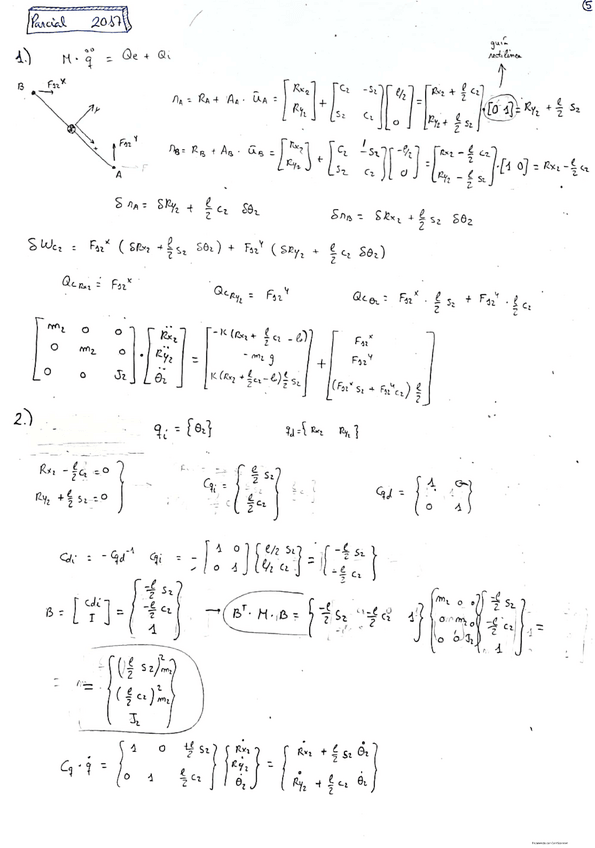 Parcial 2017
5
1.) M · q̈ = Qe + Qi
guía rectilínea
B F12ˣ
F12ʸ
A
r_A = R_A + A_A · ū_A = [Rx2; Ry2] + [C2 -S2; S2 C2] [l/2; 0] = [Rx2 + l/2 C2; Ry2 + l/2 S2] · [0 1] = Ry2 + l/2 S2
r_B = R_B + A_B · ū_B = [Rx2; Ry2] + [C2 -S2; S2 C2] [-l/2; 0] = [Rx2 - l/2 C2; Ry2 - l/2 S2] · [1 0] = Rx2 - l/2 C2
δr_A = δRy2 + l/2 C2 δθ2 δr_B = δRx2 + l/2 S2 δθ2
δWc2 = F12ˣ (δRx2 + l/2 S2 δθ2) + F12ʸ (δRy2 + l/2 C2 δθ2)
Qc_Rx2 = F12ˣ Qc_Ry2 = F12ʸ Qc_θ2 = F12ˣ · l/2 S2 + F12ʸ · l/2 C2
[m2 0 0; 0 m2 0; 0 0 J2] · [R̈x2; R̈y2; θ̈2] = [-K(Rx2 + l/2 C2 - l); -m2 g; K(Rx2 + l/2 C2 - l) l/2 S2] + [F12ˣ; F12ʸ; (F12ˣ S2 + F12ʸ C2) l/2]
2.) qi = {θ2} qd = {Rx2 Ry2}
Rx2 - l/2 C2 = 0
Ry2 + l/2 S2 = 0
Cqi = {l/2 S2; l/2 C2} Cqd = {1 0; 0 1}
Cdi = -Cqd⁻¹ Cqi = -[1 0; 0 1] {l/2 S2; l/2 C2} = {-l/2 S2; -l/2 C2}
B = [Cdi; I] = {-l/2 S2; -l/2 C2; 1} → Bᵀ · M · B = {-l/2 S2 -l/2 C2 1} {m2 0 0; 0 m2 0; 0 0 J2} {-l/2 S2; -l/2 C2; 1} =
= {(l/2 S2)² m2; (l/2 C2)² m2; J2}
Cq · q̇ = {1 0 +l/2 S2; 0 1 l/2 C2} {Ṙx2; Ṙy2; θ̇2} = {Ṙx2 + l/2 S2 θ̇2; Ṙy2 + l/2 C2 θ̇2}